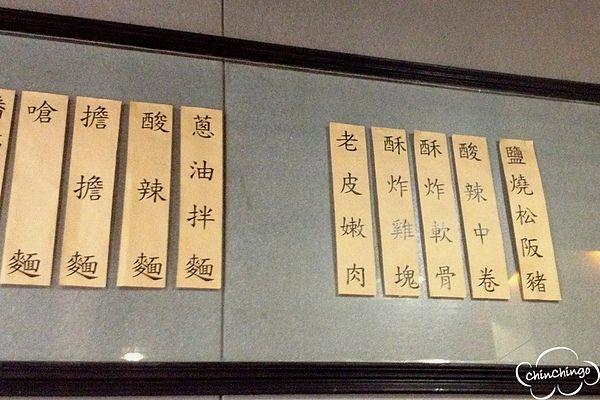 鹽燒松阪豬
酸辣中卷
酥炸軟骨
酥炸雞塊
老皮嫩肉
蔥油拌麵
酸辣麵
擔擔麵
嗆麵
chinchingo